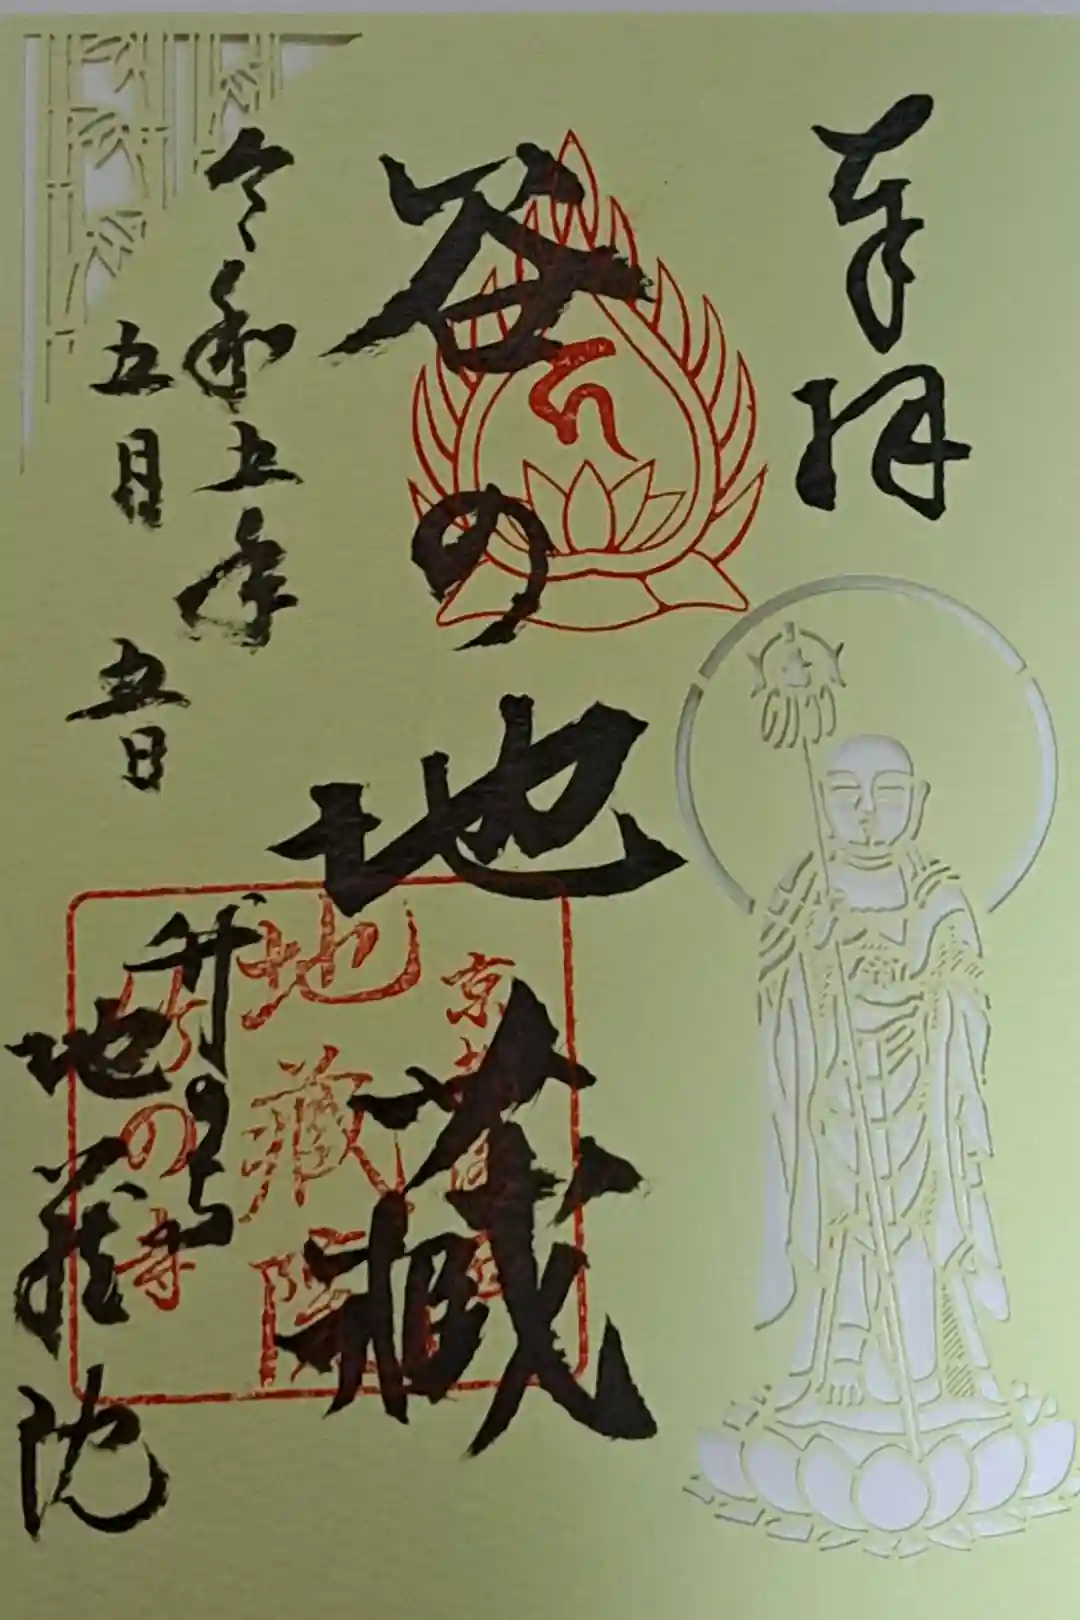 奉拝
谷の地蔵
令和五年
五月五日
竹の寺
地蔵院
京
地藏院
竹の寺